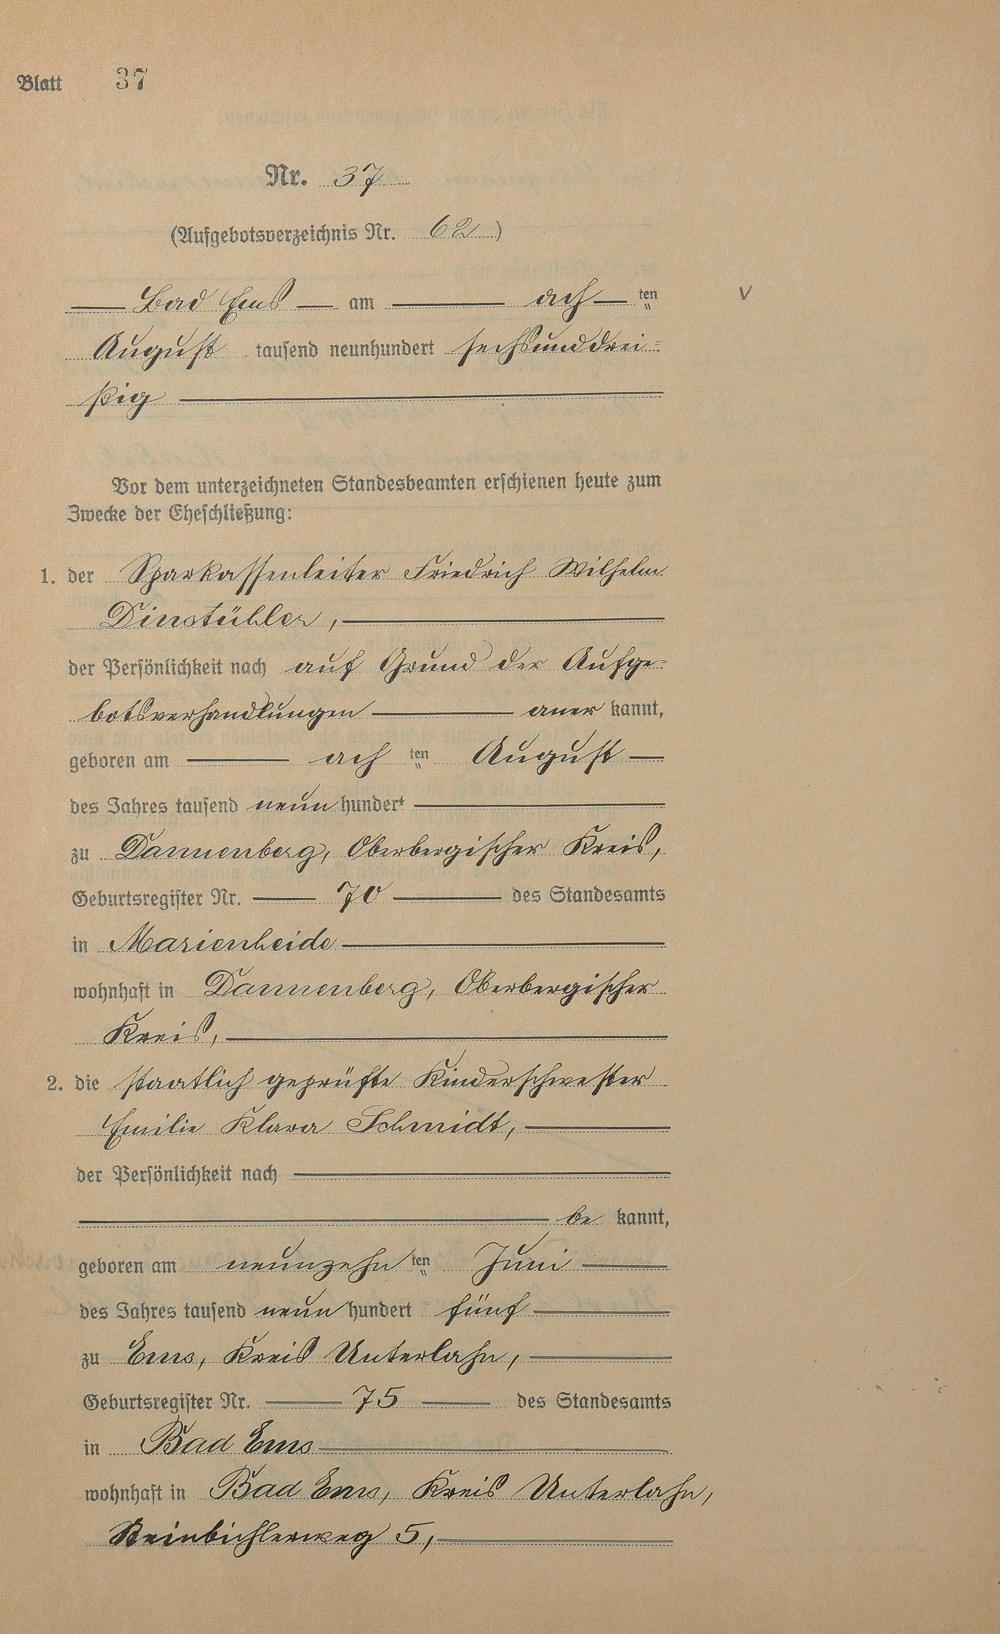 Blatt 37
Nr. 37
(Aufgebotsverzeichnis Nr. 62)
Bad Ems am ach ten
August tausend neunhundert sechsunddrei=
ßig
Vor dem unterzeichneten Standesbeamten erschienen heute zum
Zwecke der Eheschließung:
1. der Sparkassenleiter Friedrich Wilhelm
Dinstühler,
der Persönlichkeit nach auf Grund der Aufge=
botsverhandlungen aner kannt,
geboren am ach ten August
des Jahres tausend neun hundert
zu Dannenberg, Oberbergischer Kreis,
Geburtsregister Nr. 70 des Standesamts
in Marienheide
wohnhaft in Dannenberg, Oberbergischer
Kreis,
2. die staatlich geprüfte Kinderschwester
Emilie Klara Schmidt,
der Persönlichkeit nach
be kannt,
geboren am neunzehn ten Juni
des Jahres tausend neun hundert fünf
zu Ems, Kreis Unterlahn,
Geburtsregister Nr. 75 des Standesamts
in Bad Ems
wohnhaft in Bad Ems, Kreis Unterlahn,
5,